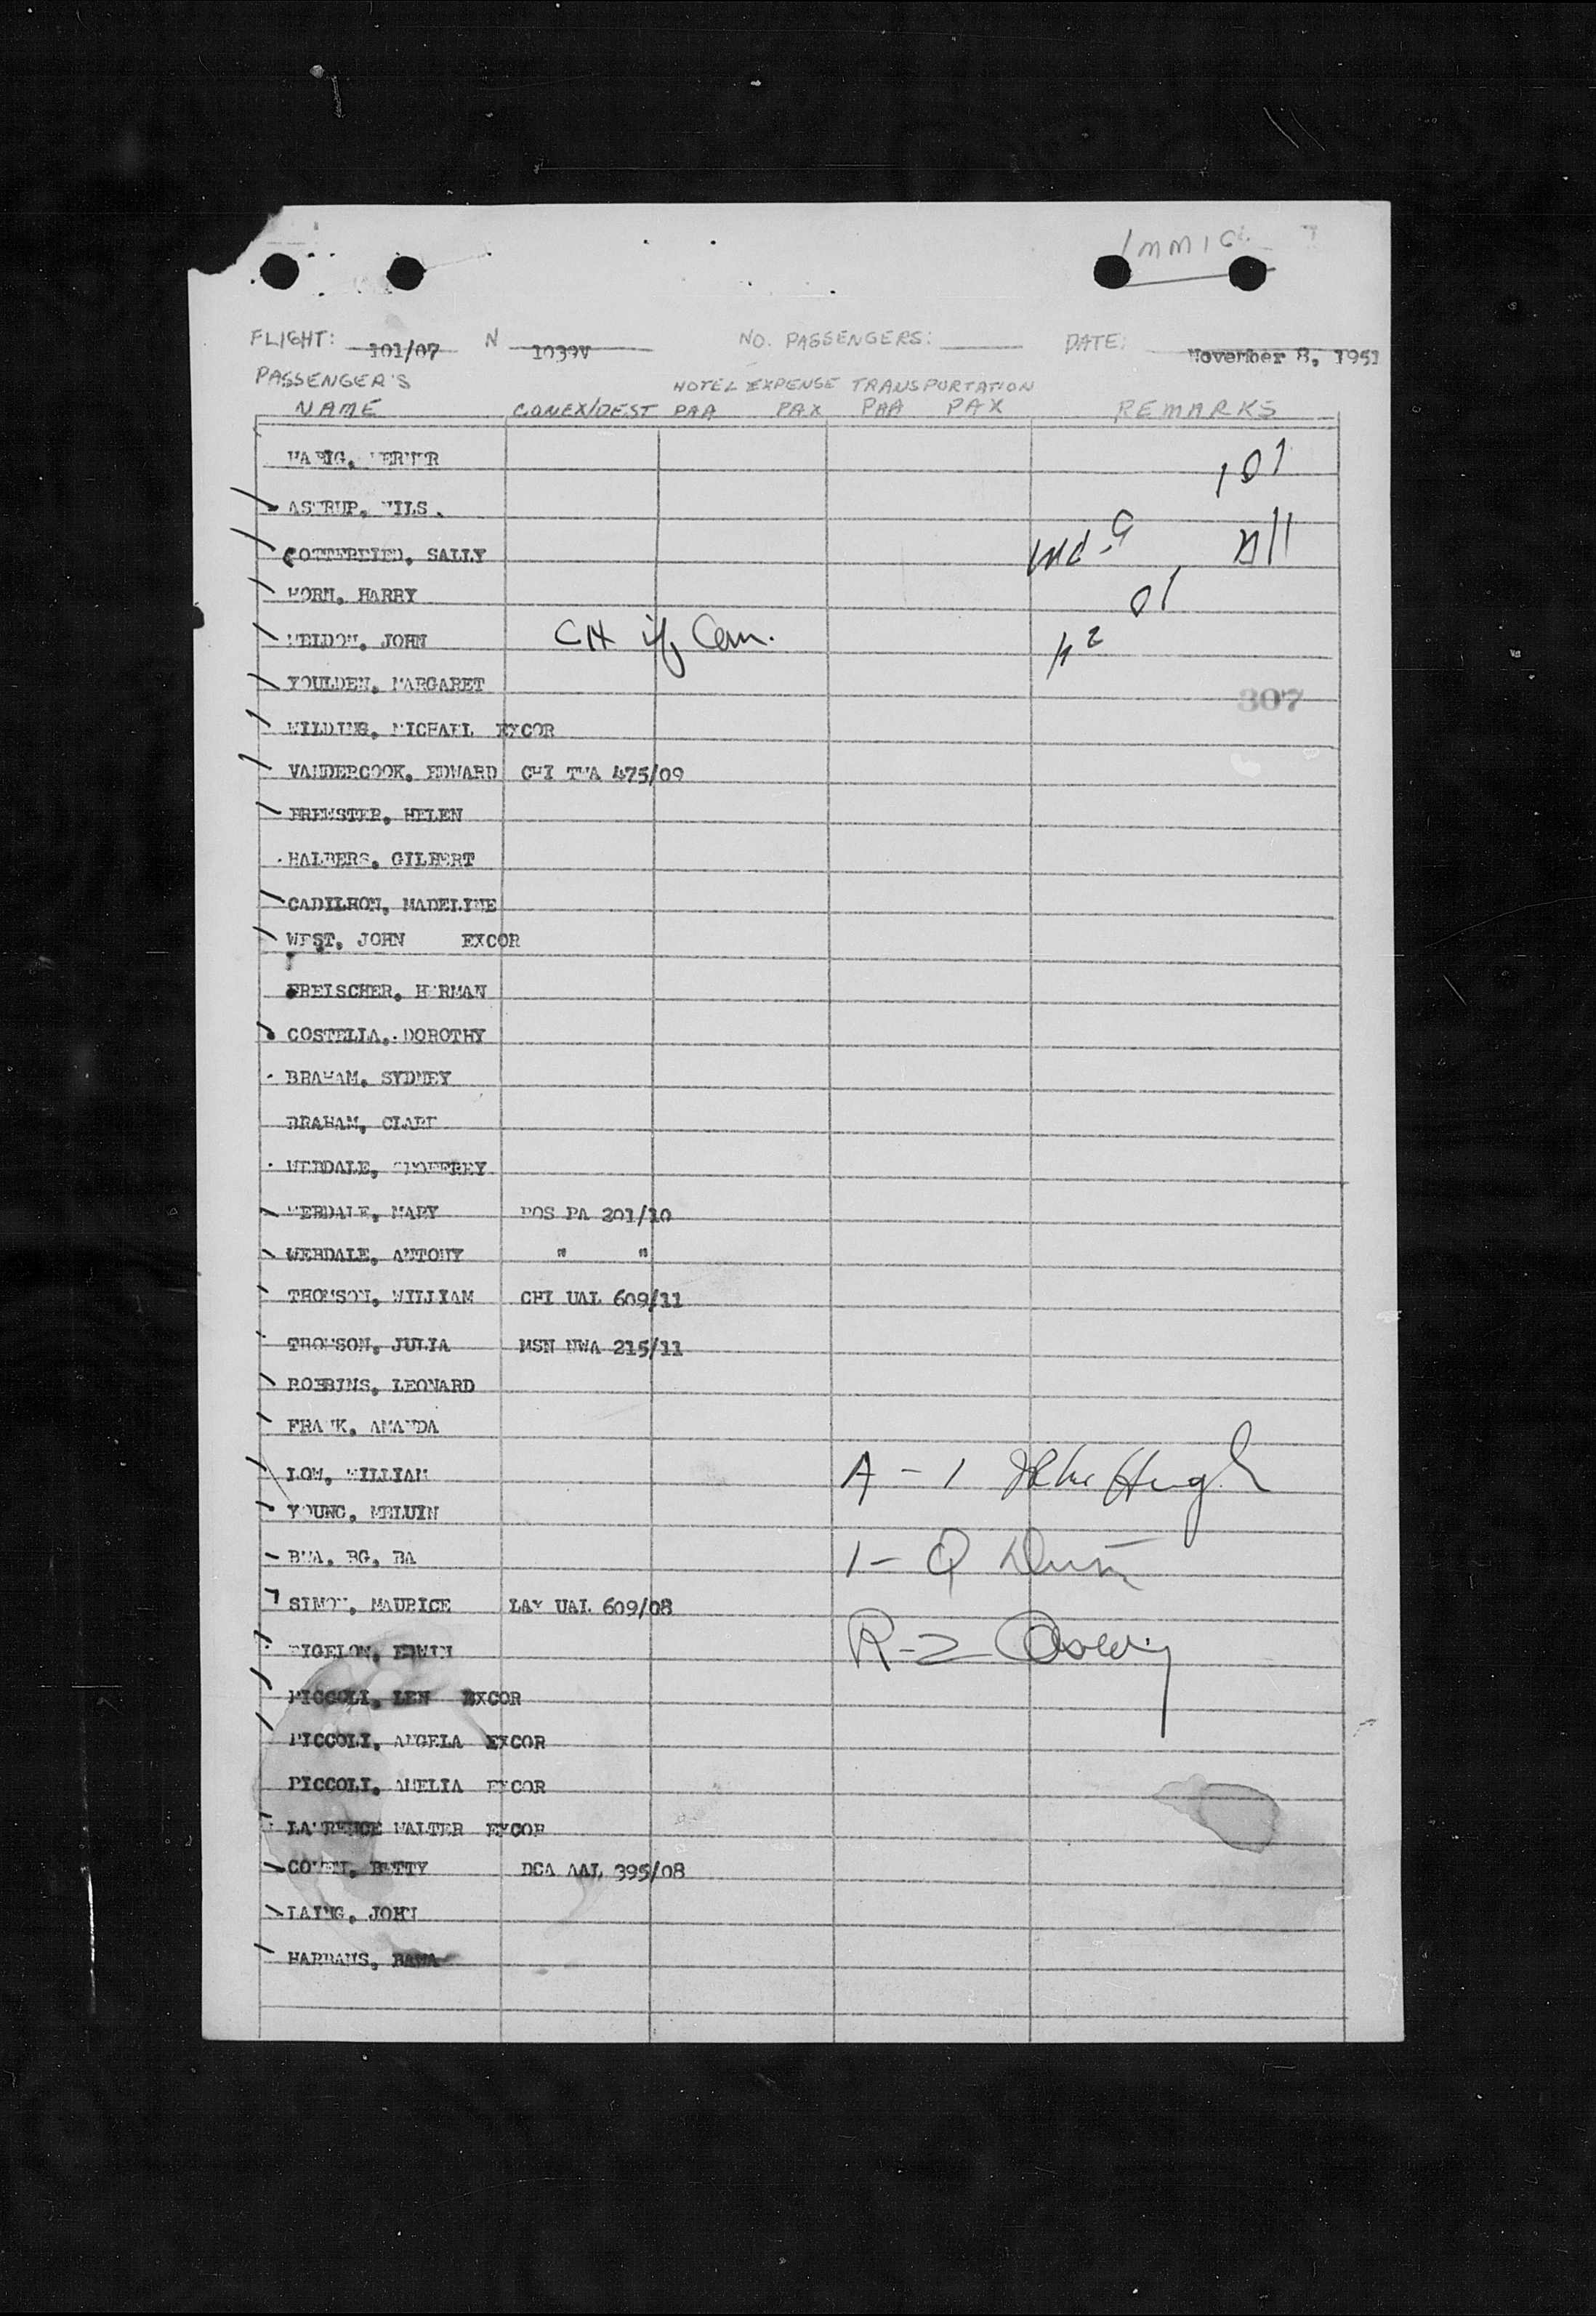 IMMIG.
FLIGHT: 101/07 N 1039V NO. PASSENGERS: DATE: November 8, 1951
PASSENGER'S HOTEL EXPENSE TRANSPORTATION
NAME CONEX/DEST PAA PAX PAA PAX REMARKS
101
ASTRUP, NILS.
GOTTFRIED, SALLY
HORN, HARRY
WELDON, JOHN CH if Can.
YOULDEN, MARGARET
307
WILDING, MICHAEL EXCOR
VANDERCOOK, EDWARD CHI TWA 475/09
BREWSTER, HELEN
HALBERS, GILBERT
CADILHON, MADELINE
WEST, JOHN EXCOR
FREISCHER, HERMAN
COSTELLA, DOROTHY
BRAHAM, SYDNEY
BRAHAM, CLARE
WEBDALE, GEOFFREY
WEBDALE, MARY BOS PA 201/10
WEBDALE, ANTONY " "
THOMSON, WILLIAM CHI UAL 609/11
THOMSON, JULIA MSN NWA 215/11
ROBBINS, LEONARD
FRANK, AMANDA
LOW, WILLIAM A - 1
YOUNG, MELUIN
BWA, BG, BA 1 - Q
SIMON, MAURICE LAX UAL 609/08
BIGELOW, EDWIN R-2
PICCOLI, LEN EXCOR
PICCOLI, ANGELA EXCOR
PICCOLI, AMELIA EXCOR
LAWRENCE WALTER EXCOR
COHEN, BETTY DCA AAL 395/08
LAING, JOHN
HARBANS, RAMA